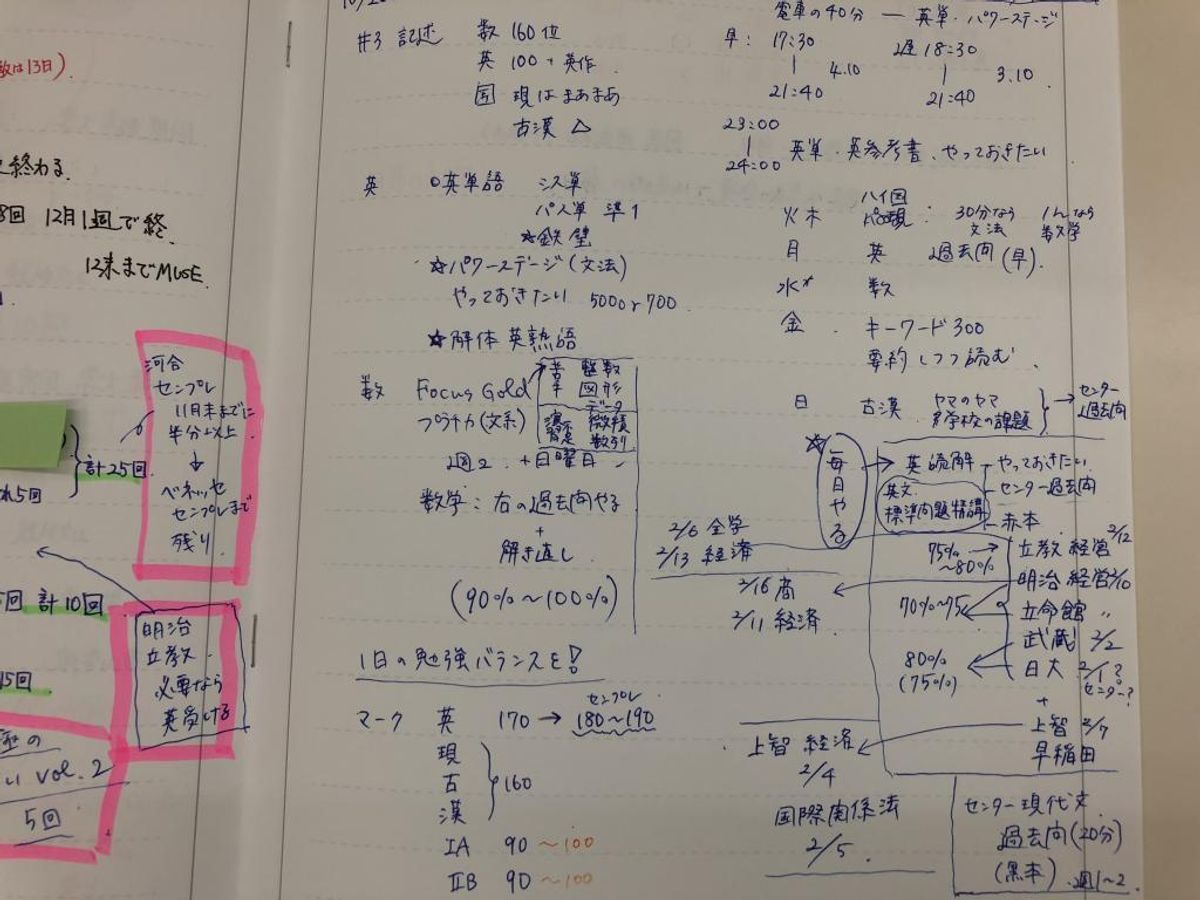 数は13日)
終わる.
8回 12月1週で終.
12末までMUSE.
河合
センプレ
11月末までに
半分以上.
↓
ベネッセ
センプレまで
残り.
計25回.
れ5回
5回 計10回
明治
立教.
必要なら
英受ける
15回
vol.2
5回
#3 記述 数 160位
英 100+英作.
国 現はまあまあ
古漢 △
英 ○英単語 シス単
パス単 準1
☆鉄壁
☆パワーステージ(文法)
やっておきたい 500or700
☆解体英熟語
数 Focus Gold
整数
図形
データ
プラチカ(文系)
微積
数列
週2 +日曜日
数学:右の過去問やる
+
解き直し.
(90%〜100%)
1日の勉強バランスを!
マーク 英 170 → 180〜190
センプレ
現
古
漢
160
IA 90 〜100
IIB 90 〜100
電車の40分 — 英単・パワーステージ
早: 17:30
|
21:40
4.10
遅 18:30
|
21:40
3.10
23:00
|
24:00
英単・英参考書、やっておきたい
火木
現:
30分なら
文法
1hなら
数学
月 英 過去問(早).
水 数
金. キーワード300
要約しつつ読む
日 古漢 ヤマのヤマ
学校の課題
→センター
過去問
☆毎日やる → 英読解
やっておきたい.
センター過去問
赤本
英文.
標準問題精講
2/6 全学
2/13 経済
75%
〜80%
→ 立教 経営 2/12
明治 経営 2/10
2/16 商
2/11 経済.
70%〜75
立命館 〃
武蔵 2/2
80%
(75%)
日大 2/1?
センター?
+
上智 2/7
早稲田
上智 経済
2/4
国際関係法
2/5.
センター現代文
過去問(20分)
(黒本).週1〜2.